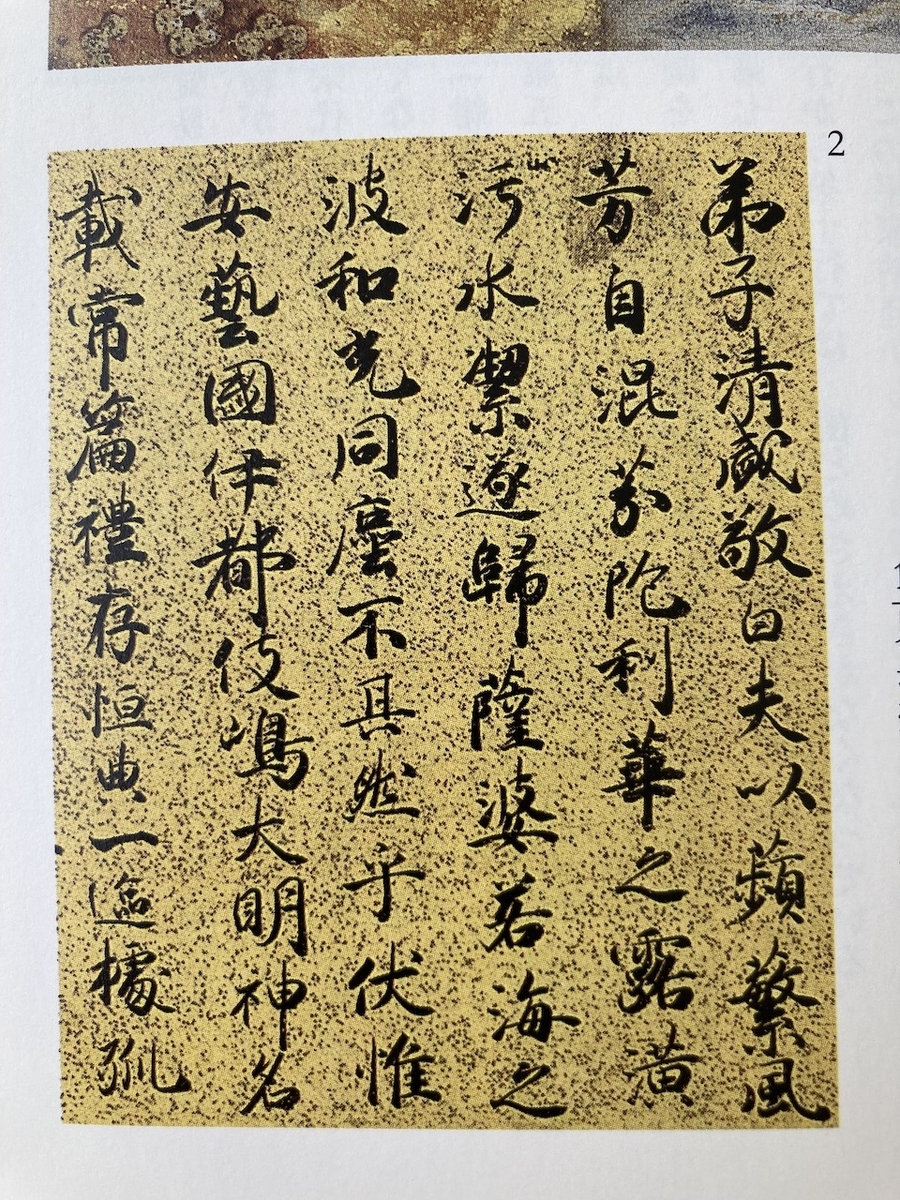 2
弟子清盛敬白夫以蘋蘩風
芳自混芬陀利華之露潢
汚水潔遂歸薩婆若海之
波和光同塵不其然乎伏惟
安藝國伊都伎嶋大明神名
載常篇禮存恒典一區據孤